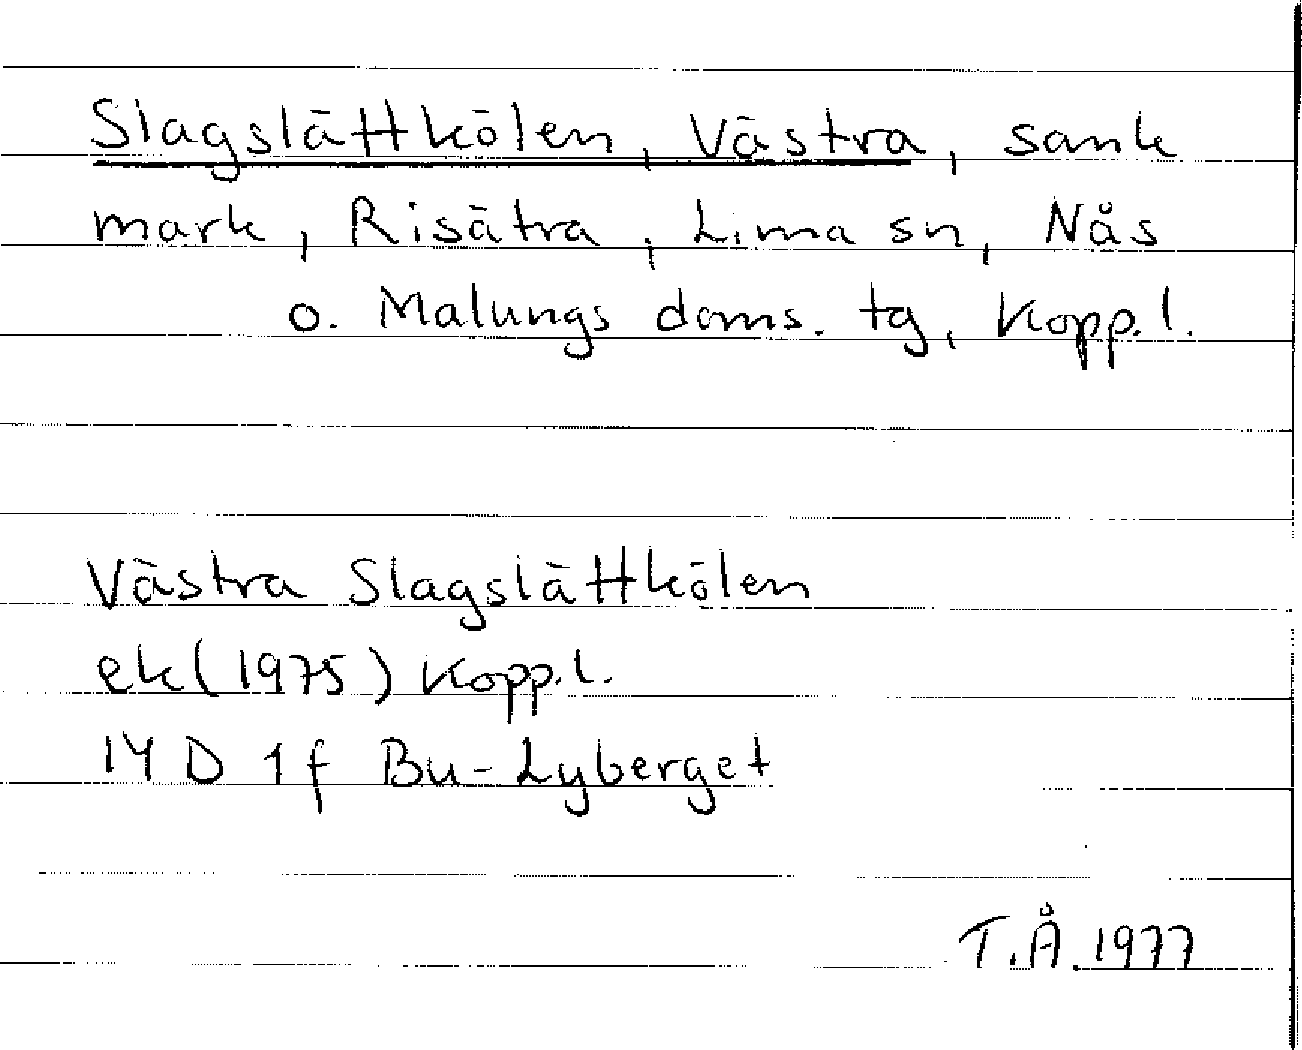 Slagslättkölen, Västra, sank
mark, Risätra, Lima sn, Nås
o. Malungs doms. tg, Kopp.l.
Västra Slagslättkölen
ek(1975) Kopp.l.
14 D 1f Bu-Lyberget
T.Å.1977